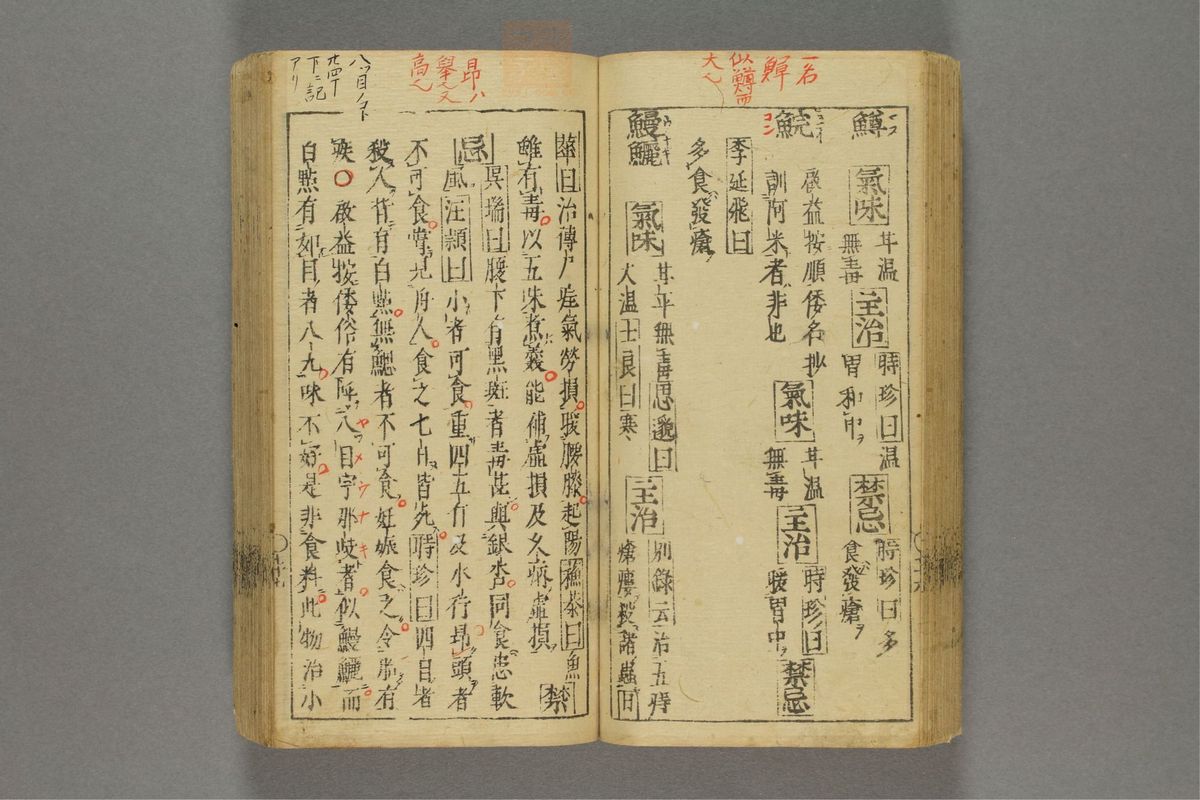 一名
鱓
似鱒而
大ヘ
鱒 氣味 甘温無毒 主治 時珍曰温胃和中 禁忌 時珍曰多食發瘡
鯇 啟益按順倭名抄訓阿米者非也 氣味 甘温無毒 主治 時珍曰暖胃中 禁忌
李延飛曰
多食發瘡
鰻鱺 氣味 甘平無毒思邈曰大温士良曰寒 主治 別録云治五痔瘡瘻殺諸蟲曰
華曰治傳尸疰氣勞損暖腰膝起陽穐泰曰魚
雖有毒以五味煮羹能補虚損及久病虚損 禁
忌 吳瑞曰腹下有黑斑者毒甚與銀杏同食患軟
風汪頴曰小者可食重四五斤及水行昂頭者
不可食嘗見舟人食之七日皆死時珍曰四目者
殺人背有白點無鰓者不可食妊娠食之令胎有
疾○啟益按倭俗有陣八目宇那岐者似鰻鱺而
白點有如目者八九味不好是非食料此物治小
昂ハ
舉ヘ又
高ヘ
八ツ目ノコト
廿四丁
下ニ記
アリ